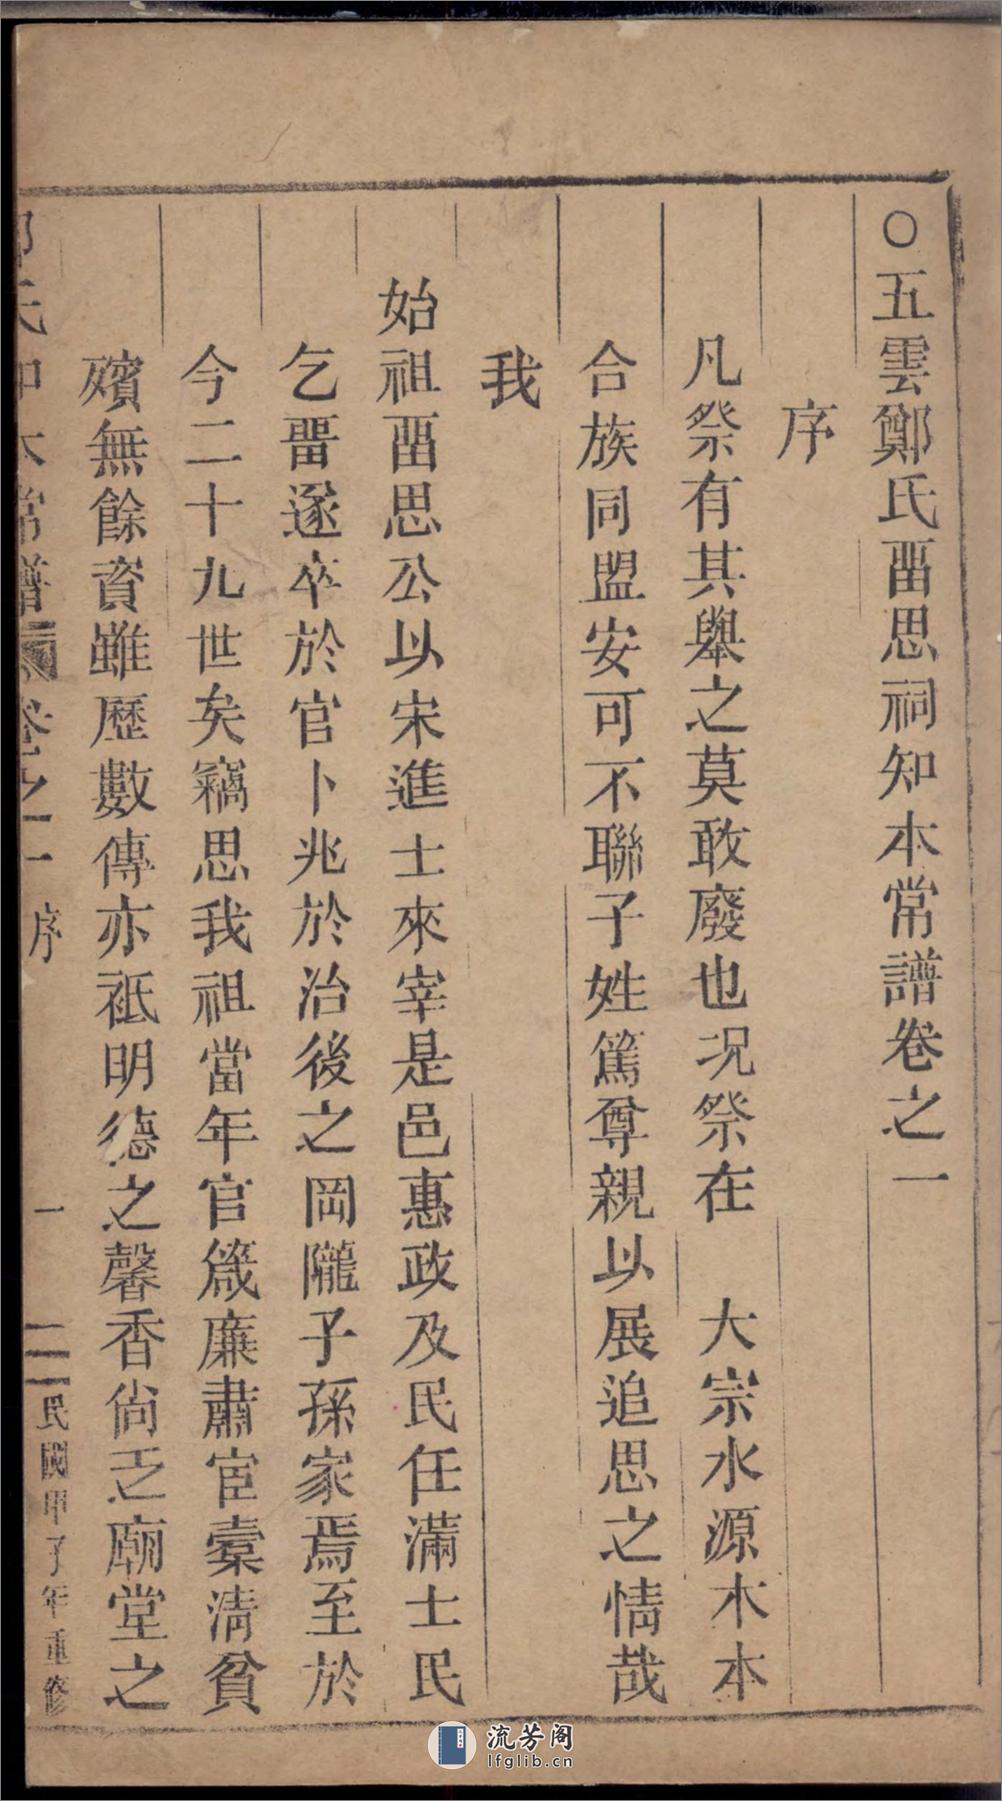 ○五雲鄭氏畱思祠知本常譜卷之一
序
凡祭有其舉之莫敢廢也况祭在 大宗水源木本
合族同盟安可不聯子姓篤尊親以展追思之情哉
我
始祖畱思公以宋進士來宰是邑惠政及民任滿士民
乞畱遂卒於官卜兆於治後之岡隴子孫家焉至於
今二十九世矣竊思我祖當年官箴廉肅宦橐淸貧
殯無餘資雖歷數傳亦祗明德之馨香尙乏廟堂之
氏 本常譜 卷之一 序 一 民國甲子年重修
流芳阁
lfglib.cn